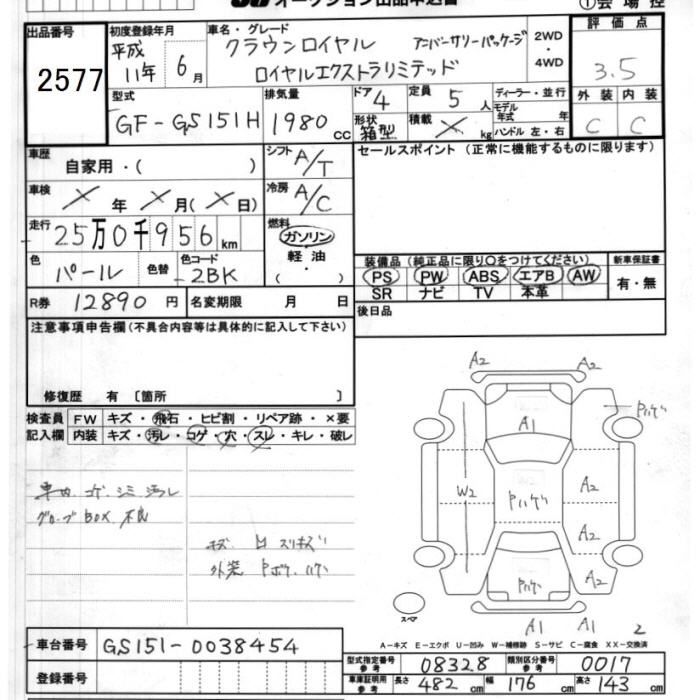 オークション出品申込書 ①会場控
出品番号 2577
初度登録年月 平成 11年 6月
車名・グレード クラウンロイヤル アニバーサリーパッケージ
ロイヤルエクストラリミテッド
2WD・4WD
評価点 3.5
外装 C 内装 C
型式 GF-GS151H
排気量 1980 cc
ドア 4 定員 5 人
形状 箱型 積載 × kg
ディーラー・並行
モデル年式 年
ハンドル 左・右
車歴 自家用・( )
シフト A/T
セールスポイント (正常に機能するものに限ります)
車検 × 年 × 月(× 日)
冷房 A/C
走行 25万0千956 km
燃料 ガソリン・軽油・( )
色 パール 色替 色コード 2BK
装備品 (純正品に限り○をつけてください) 新車保証書
PS PW ABS エアB AW 有・無
SR ナビ TV 本革
R券 12890 円 名変期限 月 日
後日品
注意事項申告欄(不具合内容等は具体的に記入して下さい)
修復歴 有〔箇所 〕
検査員記入欄
FW キズ・飛石・ヒビ割・リペア跡・×要
内装 キズ・汚レ・コゲ・穴・スレ・キレ・破レ
車内 コゲ シミ 汚レ
グローブBOX 不良
キズ 凹 スリキズ
外装 Pボケ ハゲ
A2 A2
A1 Pハゲ
W2 Pハゲ A2
A2
Pハゲ A2
スペア A1 A1 2
A-キズ E-エクボ U-凹み W-補修跡 S-サビ C-腐食 XX-交換済
車台番号 GS151-0038454
登録番号
型式指定番号 参考 08328 類別区分番号 参考 0017
車庫証明用 参考 長さ 482 cm 幅 176 cm 高さ 143 cm